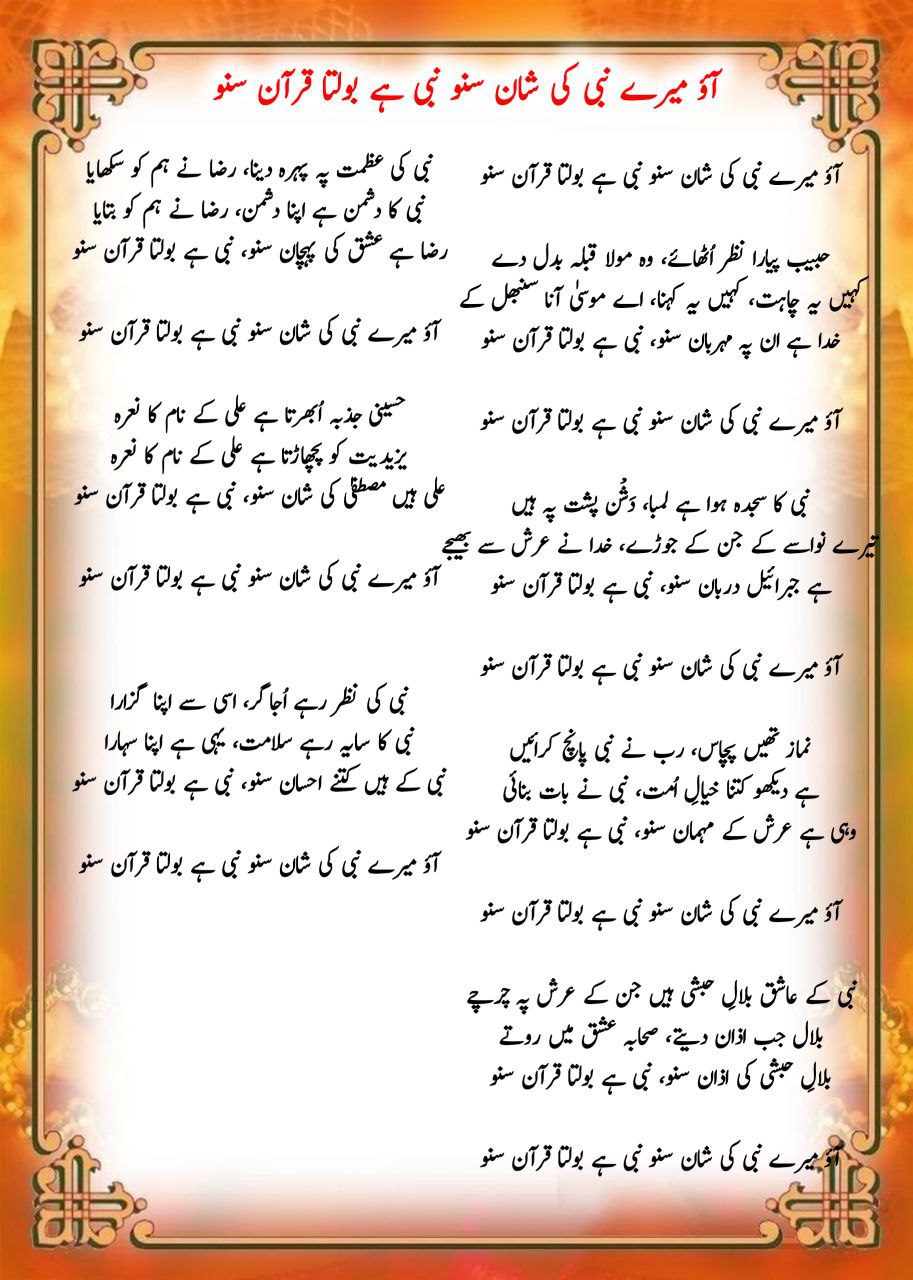 آؤ میرے نبی کی شان سنو نبی ہے بولتا قرآن سنو
آؤ میرے نبی کی شان سنو نبی ہے بولتا قرآن سنو
حبیب پیارا نظر اُٹھائے، وہ مولا قبلہ بدل دے
کہیں یہ چاہت، کہیں یہ کہنا، اے موسیٰ آنا سنبھل کے
خدا ہے ان پہ مہربان سنو، نبی ہے بولتا قرآن سنو
آؤ میرے نبی کی شان سنو نبی ہے بولتا قرآن سنو
نبی کا سجدہ ہوا ہے لمبا، پشت پہ ہیں
تیرے نواسے کے جن کے جوڑے، خدا نے عرش سے بھیجے
ہے جبرائیل دربان سنو، نبی ہے بولتا قرآن سنو
آؤ میرے نبی کی شان سنو نبی ہے بولتا قرآن سنو
نماز تھیں پچاس، رب نے نبی پانچ کرائیں
ہے دیکھو کتنا خیالِ اُمت، نبی نے بات بنائی
وہی ہے عرش کے مہمان سنو، نبی ہے بولتا قرآن سنو
آؤ میرے نبی کی شان سنو نبی ہے بولتا قرآن سنو
نبی کے عاشق بلالِ حبشی ہیں جن کے عرش پہ چرچے
بلال جب اذان دیتے، صحابہ عشق میں روتے
بلالِ حبشی کی اذان سنو، نبی ہے بولتا قرآن سنو
آؤ میرے نبی کی شان سنو نبی ہے بولتا قرآن سنو
نبی کی عظمت پہ پہرہ دینا، رضا نے ہم کو سکھایا
نبی کا دشمن ہے اپنا دشمن، رضا نے ہم کو بتایا
رضا ہے عشق کی پہچان سنو، نبی ہے بولتا قرآن سنو
آؤ میرے نبی کی شان سنو نبی ہے بولتا قرآن سنو
حسینی جذبہ اُبھرتا ہے علی کے نام کا نعرہ
یزیدیت کو پچھاڑتا ہے علی کے نام کا نعرہ
علی ہیں مصطفٰی کی شان سنو، نبی ہے بولتا قرآن سنو
آؤ میرے نبی کی شان سنو نبی ہے بولتا قرآن سنو
نبی کی نظر رہے اُجاگر، اسی سے اپنا گزارا
نبی کا سایہ رہے سلامت، یہی ہے اپنا سہارا
نبی کے ہیں کتنے احسان سنو، نبی ہے بولتا قرآن سنو
آؤ میرے نبی کی شان سنو نبی ہے بولتا قرآن سنو